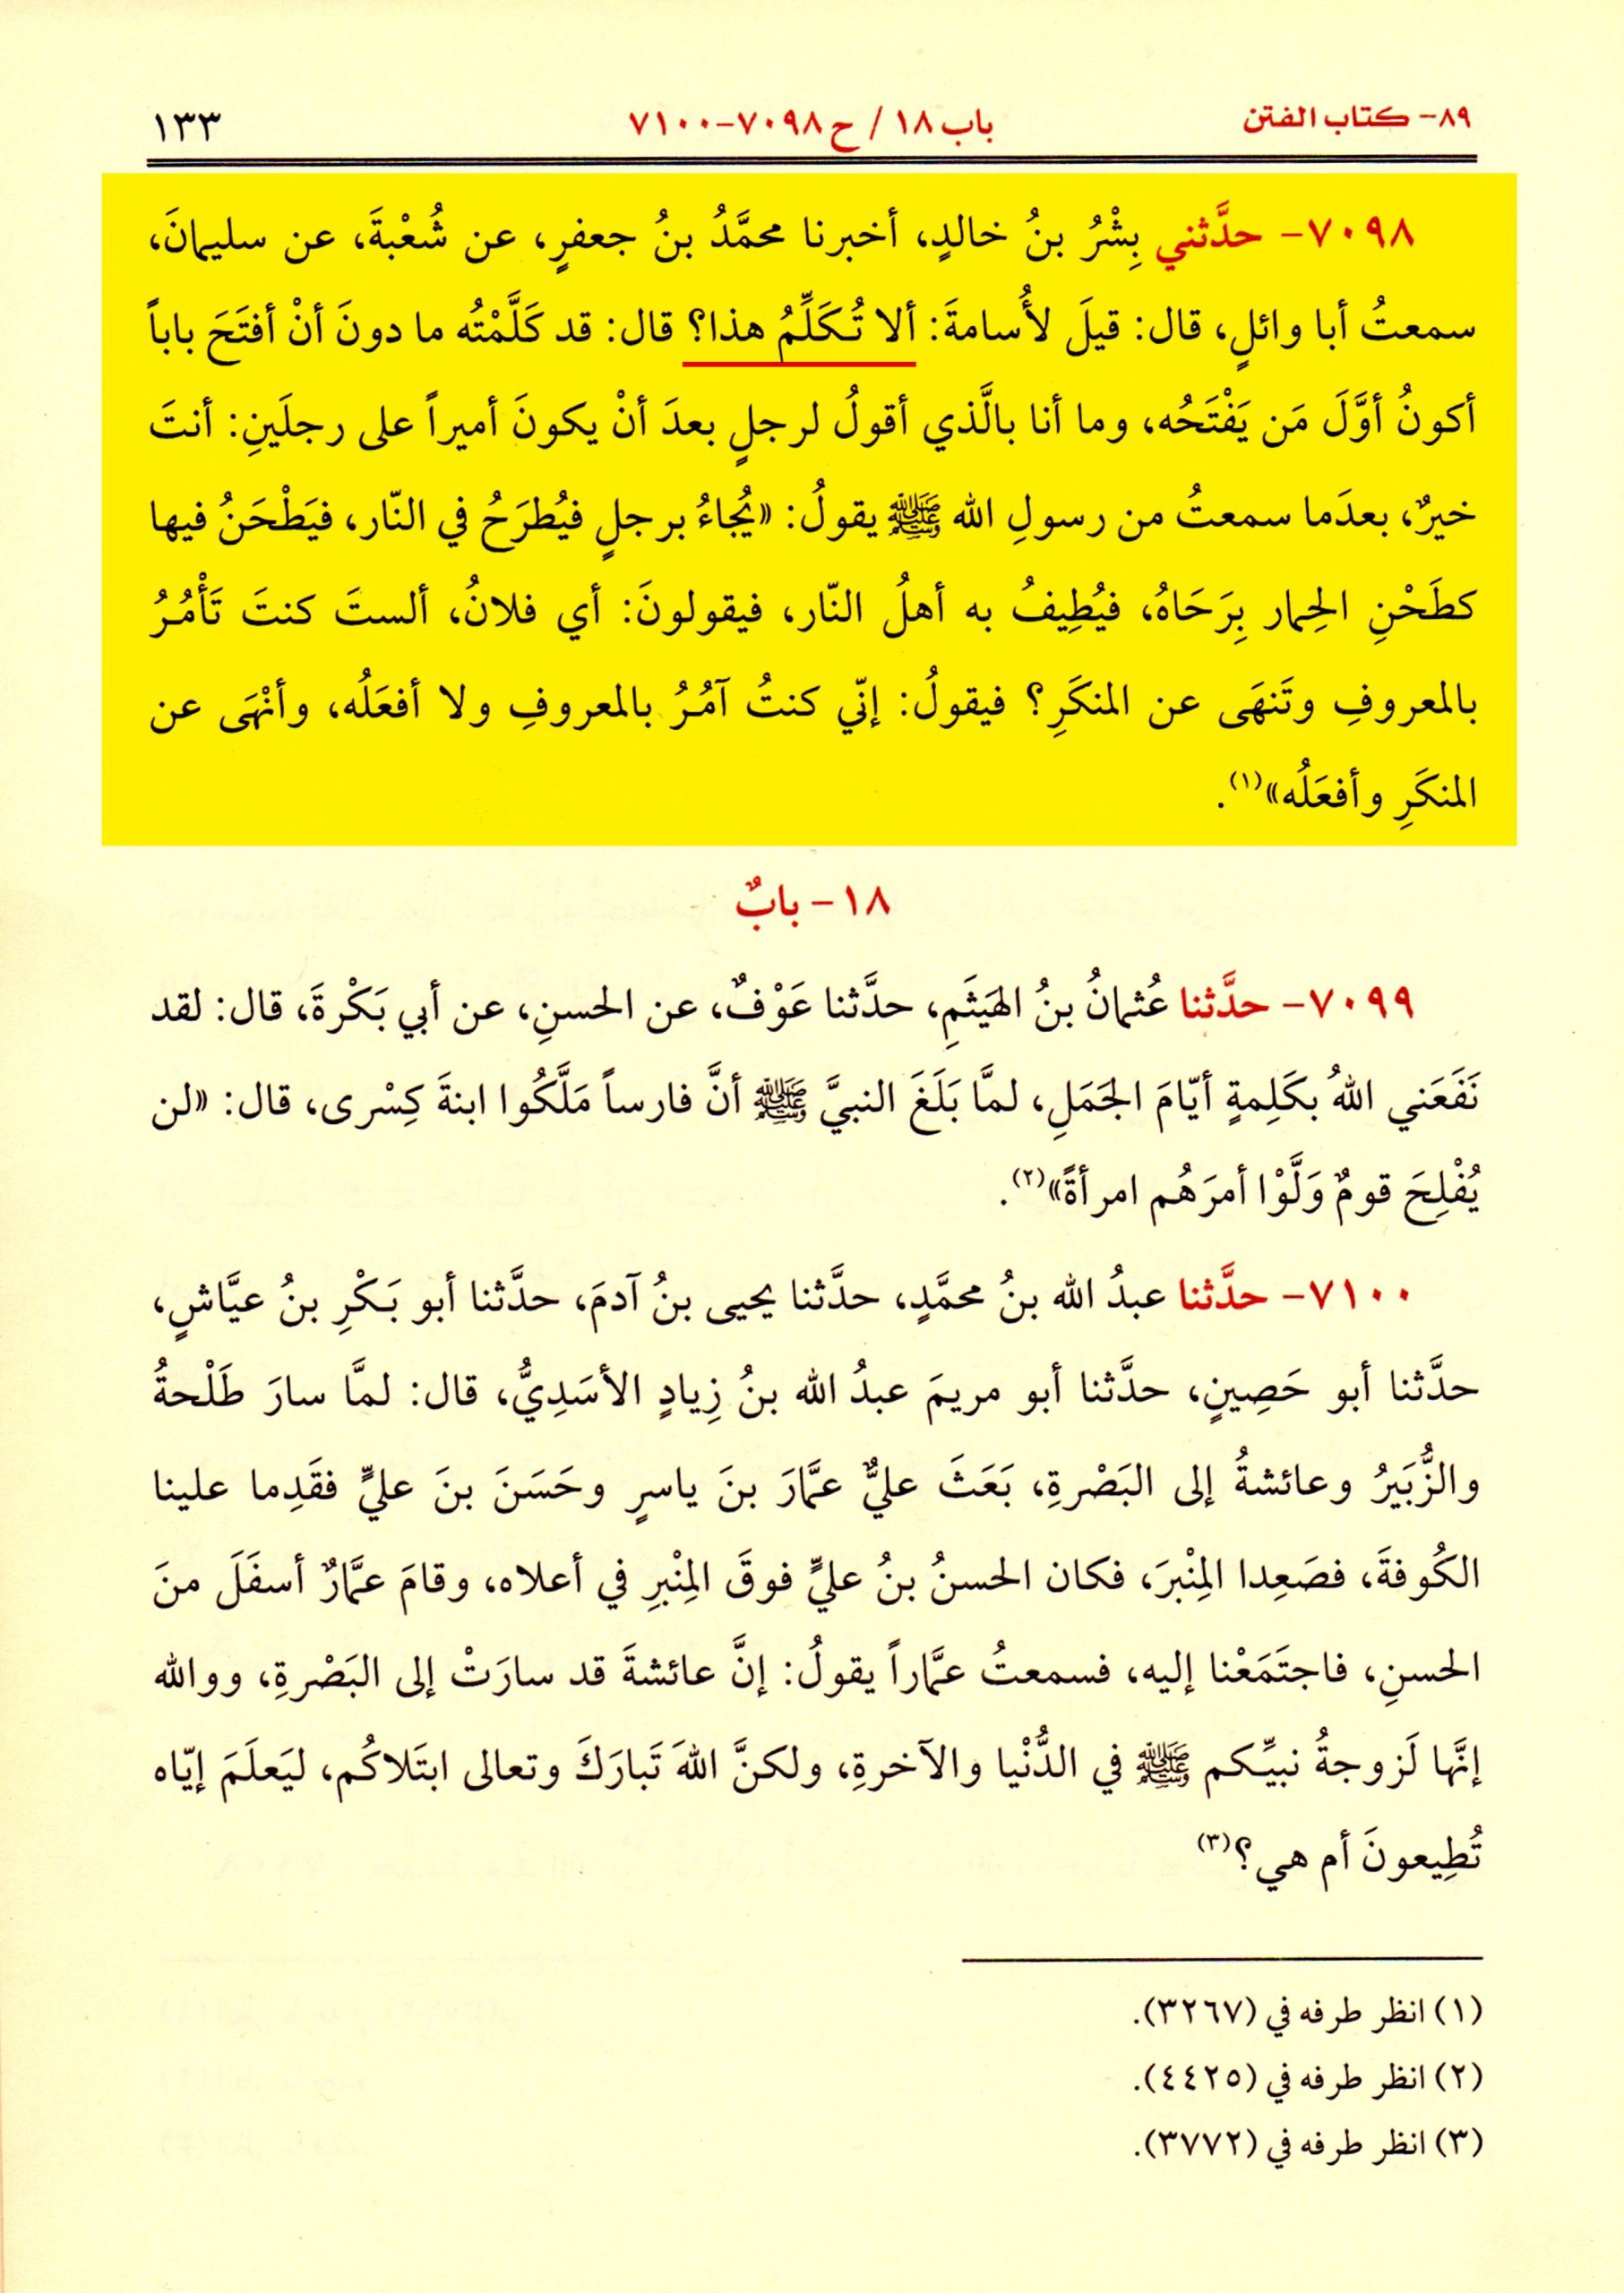 ٨٩- كتاب الفتن
باب ١٨ / ح ٧٠٩٨-٧١٠٠
١٣٣
٧٠٩٨- حدَّثني بِشْرُ بنُ خالدٍ، أخبرنا محمَّدُ بنُ جعفرٍ، عن شُعْبةَ، عن سليمانَ،
سمعتُ أبا وائلٍ، قال: قيلَ لأُسامةَ: ألا تُكَلِّمُ هذا؟ قال: قد كَلَّمْتُه ما دونَ أنْ أفتَحَ باباً
أكونُ أوَّلَ مَن يَفْتَحُه، وما أنا بالَّذي أقولُ لرجلٍ بعدَ أنْ يكونَ أميراً على رجلَينِ: أنتَ
خيرٌ، بعدَما سمعتُ من رسولِ الله ﷺ يقولُ: «يُجاءُ برجلٍ فيُطرَحُ في النّار، فيَطْحَنُ فيها
كطَحْنِ الحِمار بِرَحَاهُ، فيُطِيفُ به أهلُ النّار، فيقولونَ: أي فلانُ، ألستَ كنتَ تَأْمُرُ
بالمعروفِ وتَنهَى عن المنكَرِ؟ فيقولُ: إنّي كنتُ آمُرُ بالمعروفِ ولا أفعَلُه، وأنْهَى عن
المنكَرِ وأفعَلُه»(١).
١٨- بابٌ
٧٠٩٩- حدَّثنا عُثمانُ بنُ الهَيثَمِ، حدَّثنا عَوْفٌ، عن الحسنِ، عن أبي بَكْرةَ، قال: لقد
نَفَعَني اللهُ بكَلِمةٍ أيّامَ الجَمَلِ، لمَّا بَلَغَ النبيَّ ﷺ أنَّ فارساً مَلَّكُوا ابنةَ كِسْرى، قال: «لن
يُفْلِحَ قومٌ وَلَّوْا أمرَهُم امرأةً»(٢).
٧١٠٠- حدَّثنا عبدُ الله بنُ محمَّدٍ، حدَّثنا يحيى بنُ آدمَ، حدَّثنا أبو بَكْرِ بنُ عيَّاشٍ،
حدَّثنا أبو حَصِينٍ، حدَّثنا أبو مريمَ عبدُ الله بنُ زِيادٍ الأسَدِيُّ، قال: لمَّا سارَ طَلْحةُ
والزُّبَيرُ وعائشةُ إلى البَصْرةِ، بَعَثَ عليٌّ عمَّارَ بنَ ياسرٍ وحَسَنَ بنَ عليٍّ فقَدِما علينا
الكُوفةَ، فصَعِدا المِنْبرَ، فكان الحسنُ بنُ عليٍّ فوقَ المِنْبرِ في أعلاه، وقامَ عمَّارٌ أسفَلَ منَ
الحسنِ، فاجتَمَعْنا إليه، فسمعتُ عمَّاراً يقولُ: إنَّ عائشةَ قد سارَتْ إلى البَصْرةِ، ووالله
إنَّها لَزوجةُ نبيِّكم ﷺ في الدُّنْيا والآخرةِ، ولكنَّ اللهَ تَبارَكَ وتعالى ابتَلاكُم، ليَعلَمَ إيّاه
تُطِيعونَ أم هي؟(٣)
(١) انظر طرفه في (٣٢٦٧).
(٢) انظر طرفه في (٤٤٢٥).
(٣) انظر طرفه في (٣٧٧٢).